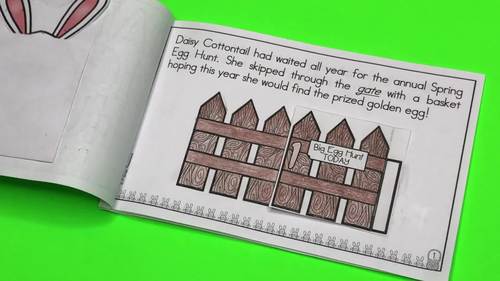 Daisy Cottontail had waited all year for the annual Spring
Egg Hunt. She skipped through the gate with a basket
hoping this year she would find the prized golden egg!
Big Egg Hunt
TODAY
1